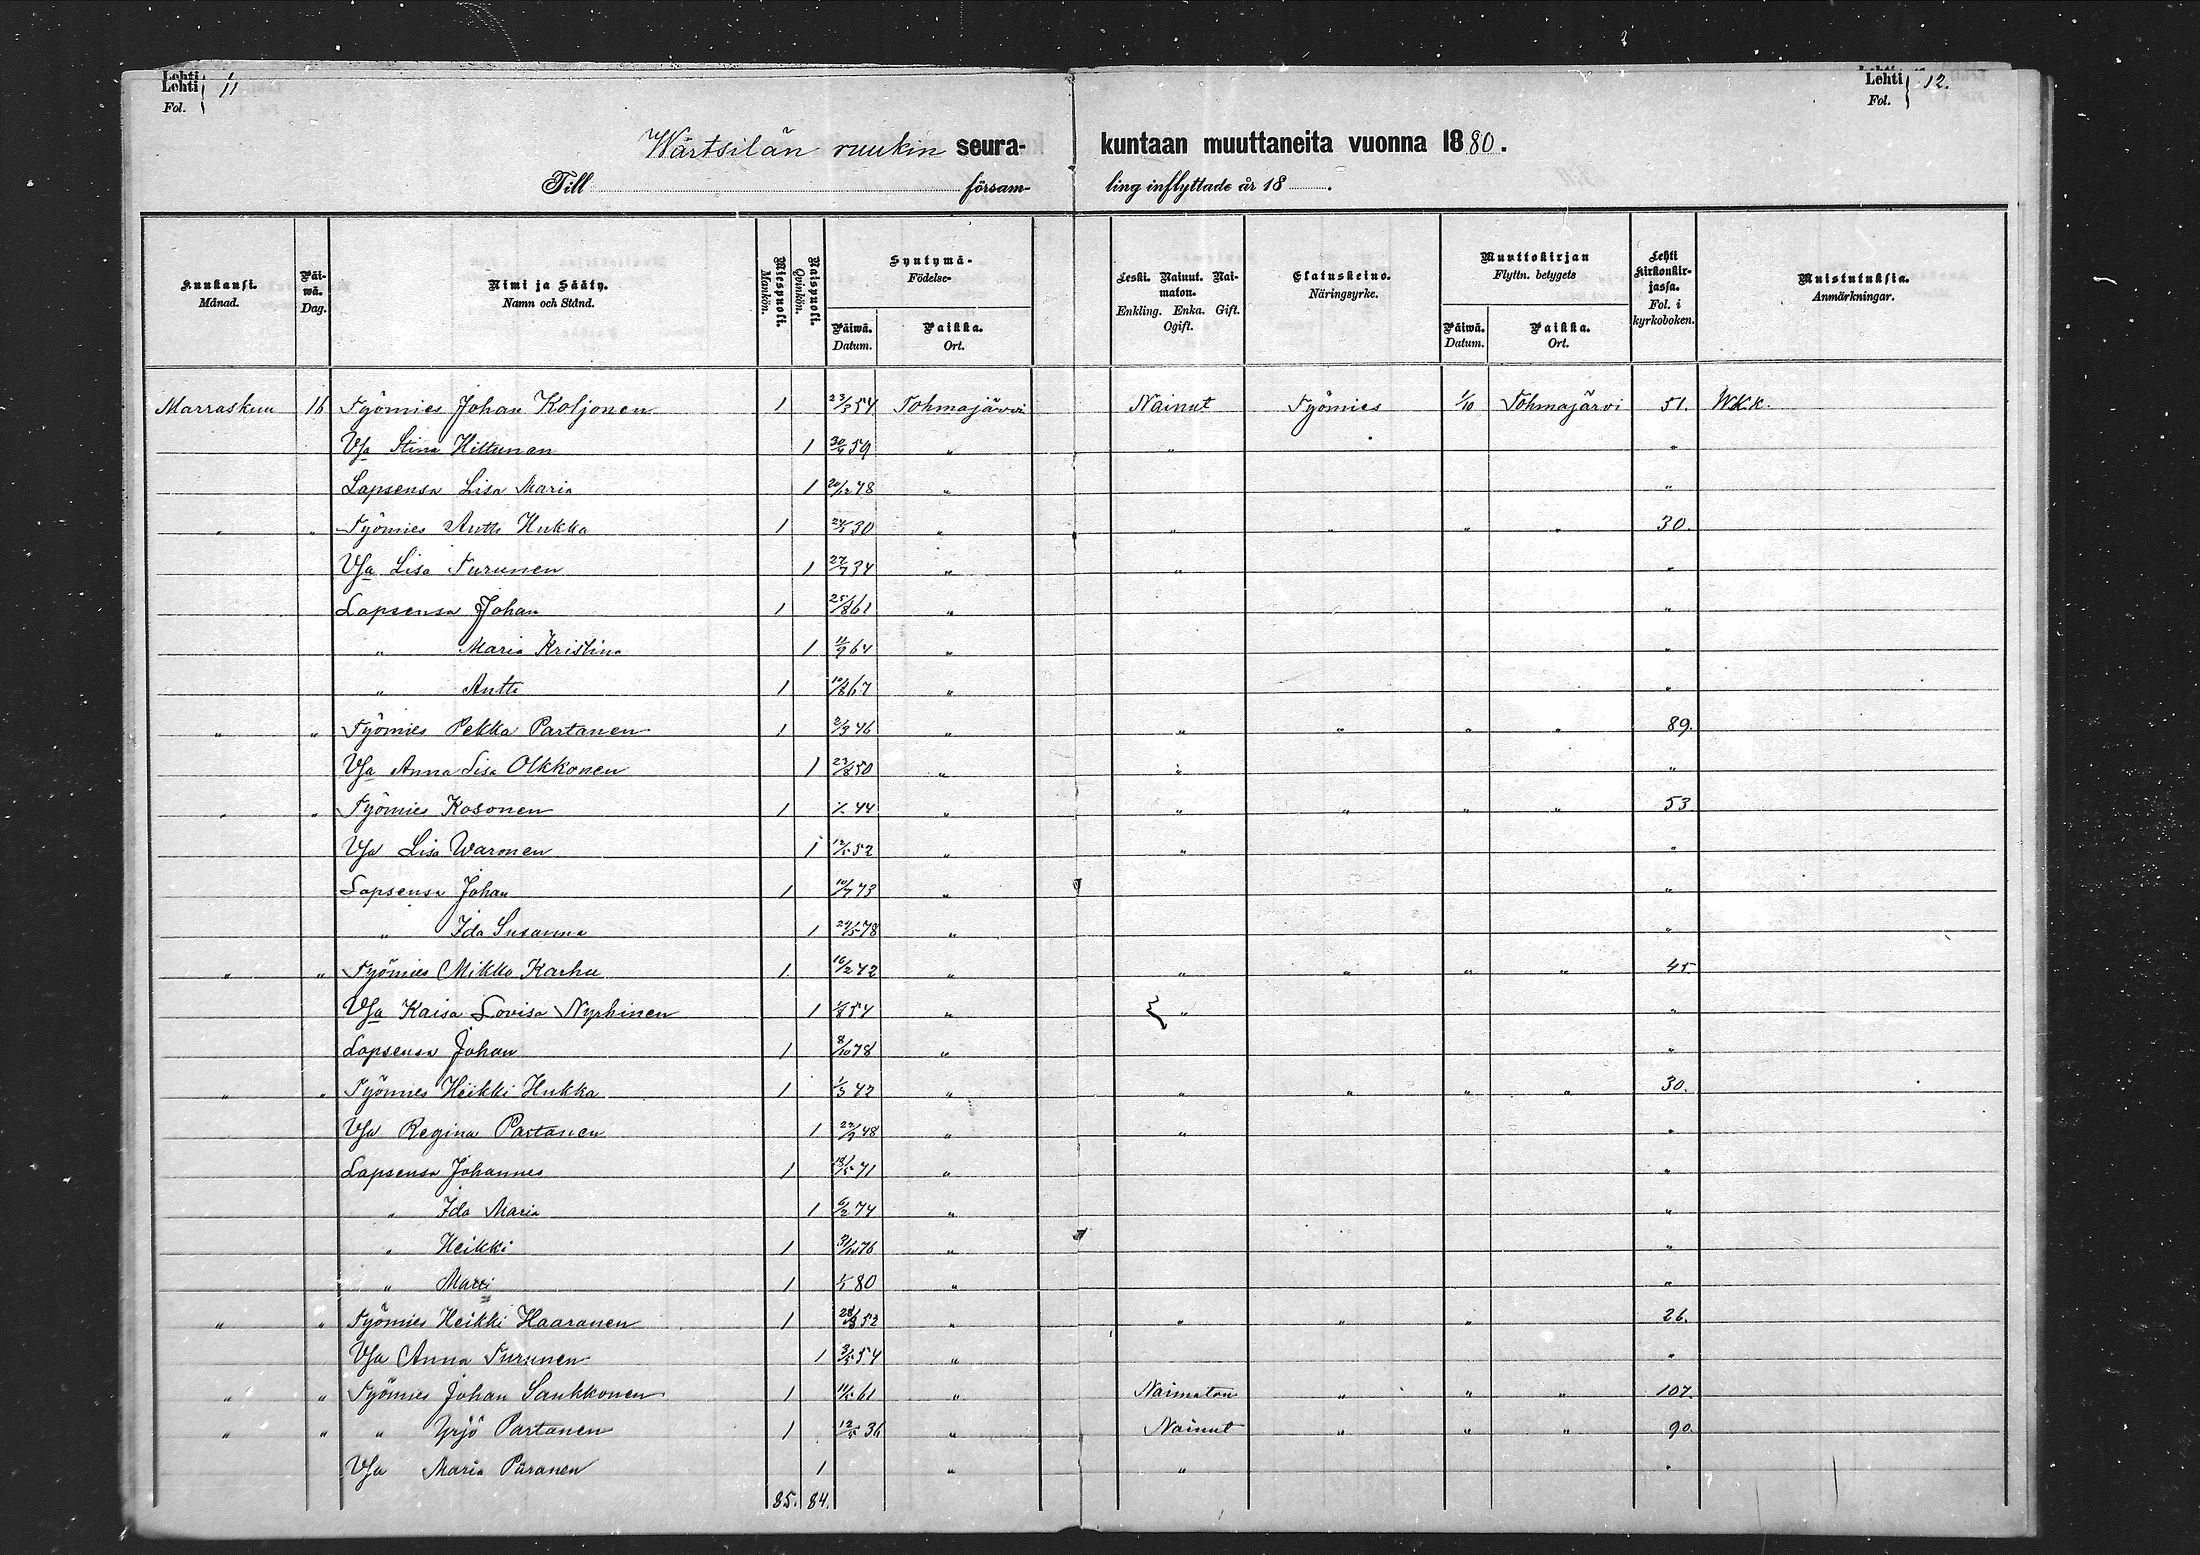 Lehti 11
Fol.
Lehti 12.
Fol.
Wärtsilän ruukin seura- kuntaan muuttaneita vuonna 1880.
Till försam- ling inflyttade år 18 .
Kuukausi. Månad. | Päiwä. Dag. | Nimi ja Sääty. Namn och Stånd. | Miespuoli. Mankön. | Naispuoli. Qvinkön. | Syntymä- Födelse- Päiwä. Datum. | Paikka. Ort. | Leski. Nainut. Naimaton. Enkling. Enka. Gift. Ogift. | Elatuskeino. Näringsyrke. | Muuttokirjan Flyttn. betygets Päiwä. Datum. | Paikka. Ort. | Lehti kirkonkirjassa. Fol. i kyrkoboken. | Muistutuksia. Anmärkningar.
Marraskuu 16 Työmies Johan Koljonen 1 23/3 54 Tohmajärvi Nainut Työmies 1/10 Tohmajärvi 51. W.K.k.
Vsa Stina Hiltunen 1 59 " " "
Lapsensa Lisa Maria 1 20/12 78 " "
" " Työmies Antti Hukka 1 30 " " " " " 30.
Vsa Lisa Turunen 1 27/7 34 " " "
Lapsensa Johan 1 25/8 61 " "
" Maria Kristina 1 11/9 64 " "
" Antti 1 10/8 67 " "
" " Työmies Pekka Partanen 1 2/3 46 " " " " " 89.
Vsa Anna Lisa Olkkonen 1 23/8 50 " " "
" " Työmies Kosonen 1 44 " " " " " 53
Vsa Lisa Waronen 1 52 " " "
Lapsensa Johan 1 10/7 73 " "
" Ida Susanna 1 24/5 78 " "
" " Työmies Mikko Karhu 1. 16/2 42 " " " " " 45
Vsa Kaisa Lovisa Nyrhinen 1 1/8 54 " " "
Lapsensa Johan 1 8/10 78 " "
" " Työmies Heikki Hukka 1 1/3 42 " " " " " 30.
Vsa Regina Partanen 1 27/9 48 " " "
Lapsensa Johannes 1 18/5 71 " "
" Ida Maria 1 6/2 74 " "
" Heikki 1 31/10 76 " "
" Matti 1 80 " "
" " Työmies Heikki Haaranen 1 52 " " " " 26.
Vsa Anna Turunen 1 3/5 54 " "
" " Työmies Johan Saukkonen 1 61 " Naimaton " " " 107.
" " " Yrjö Partanen 1 12/5 36 " Nainut " " " 90.
Vsa Maria Piiranen 1 " " "
85. 84.